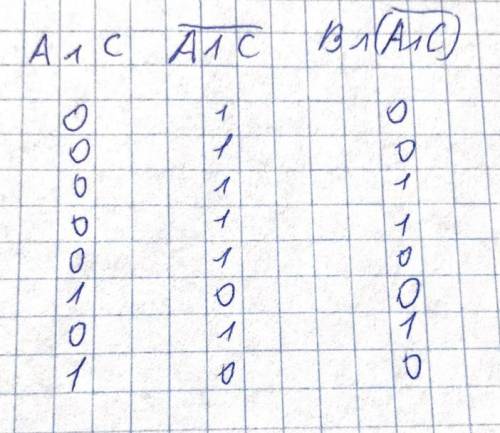 A ∧ C  A̅ ̅∧̅ ̅C̅  B ∧ (A̅∧̅C̅)
0 1 0
0 1 0
0 1 1
0 1 1
0 1 0
1 0 0
0 1 1
1 0 0